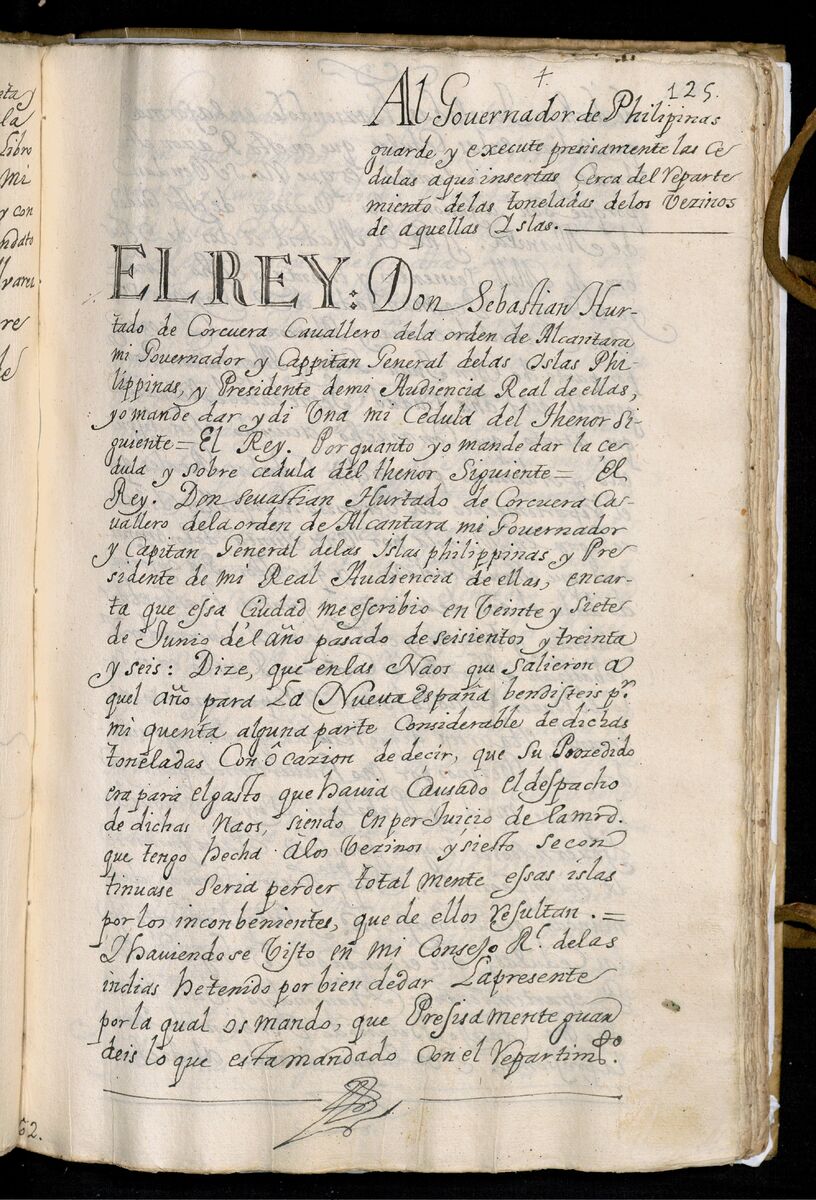 ta y
la
Libro
Mi
y con
ndato
lvarez
re
le
52.
+
125.
Al Governador de Philipinas
guarde y execute presisamente las Ce
dulas aqui insertas Cerca del reparte
miento delas toneladas delos Vezinos
de aquellas Islas.
EL REY: Don Sebastian Hur-
tado de Corcuera Cavallero dela orden de Alcantara
mi Governador y Cappitan General delas Islas Phi-
lippinas, y Presidente demi Audiencia Real de ellas,
yo mande dar y di Una mi Cedula del thenor Si-
guiente= El Rey. Por quanto yo mande dar la ce
dula y sobre cedula del thenor Siguiente= el
Rey. Don sevastian Hurtado de Corcuera Ca-
vallero dela orden de Alcantara mi Governador
y Capitan General delas Islas philippinas y Pre
sidente de mi Real Audiencia de ellas, encar-
ta que essa Ciudad me escribio en Veinte y siete
de Junio del año pasado de seisientos y treinta
y seis: Dize, que en las Naos que salieron a
quel año para La Nueva españa bendisteis pr.
mi quenta alguna parte Considerable de dichas
toneladas Con ôcazion de decir, que su Prozedido
era para el gasto que havia Causado el despacho
de dichas Naos, siendo en perJuicio de la mrd.
que tengo hecha a los Vezinos y si esto se con
tinuase seria perder total mente essas islas
por los inconbenientes, que de ellos resultan.=
Y haviendose Visto en mi Consejo Rl. delas
indias he tenido por bien dedar La presente
por la qual os mando, que Presisa mente guar
deis lo que esta mandado Con el repartimto.